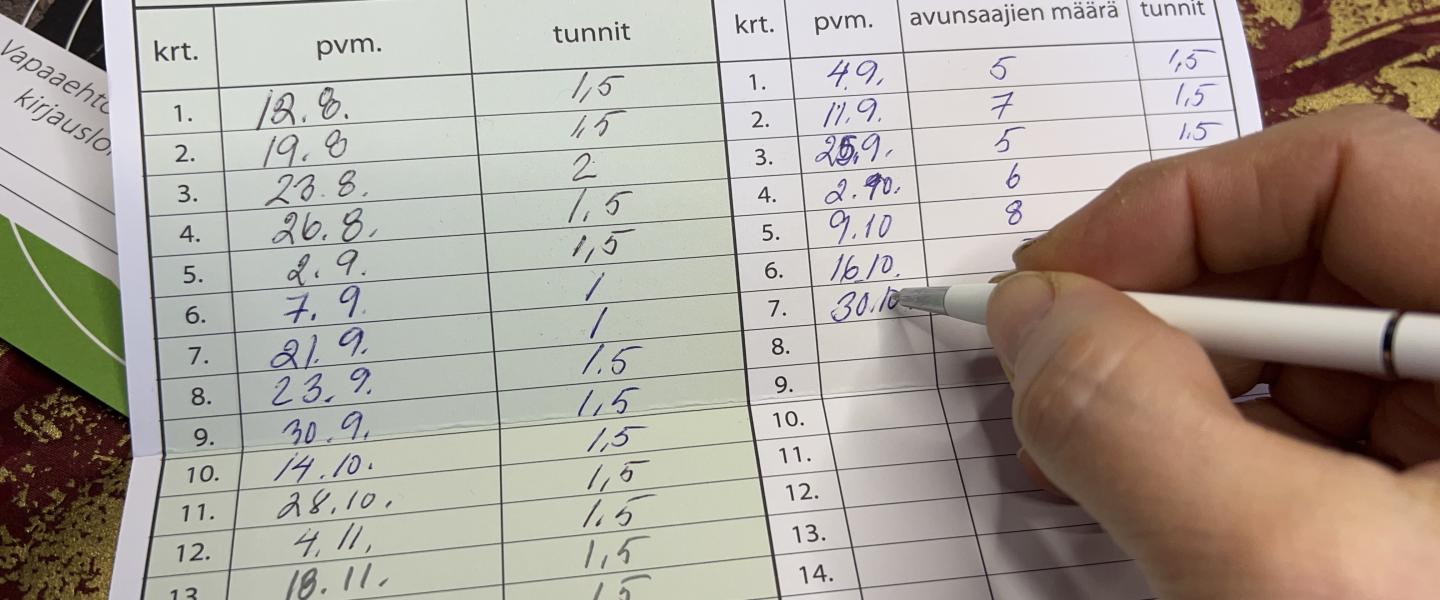 Vapaaehto
kirjauslo
krt. pvm. tunnit
1. 12.8. 1,5
2. 19.8 1,5
3. 23.8. 2
4. 26.8. 1,5
5. 2.9. 1,5
6. 7.9. 1
7. 21.9. 1
8. 23.9. 1.5
9. 30.9. 1,5
10. 14.10. 1,5
11. 28.10. 1,5
12. 4.11. 1.5
13. 18.11. 1,5
1,5
krt. pvm. avunsaajien määrä tunnit
1. 4.9. 5 1,5
2. 11.9. 7 1,5
3. 25.9. 5 1.5
4. 2.10. 6
5. 9.10 8
6. 16.10.
7. 30.10
8.
9.
10.
11.
12.
13.
14.